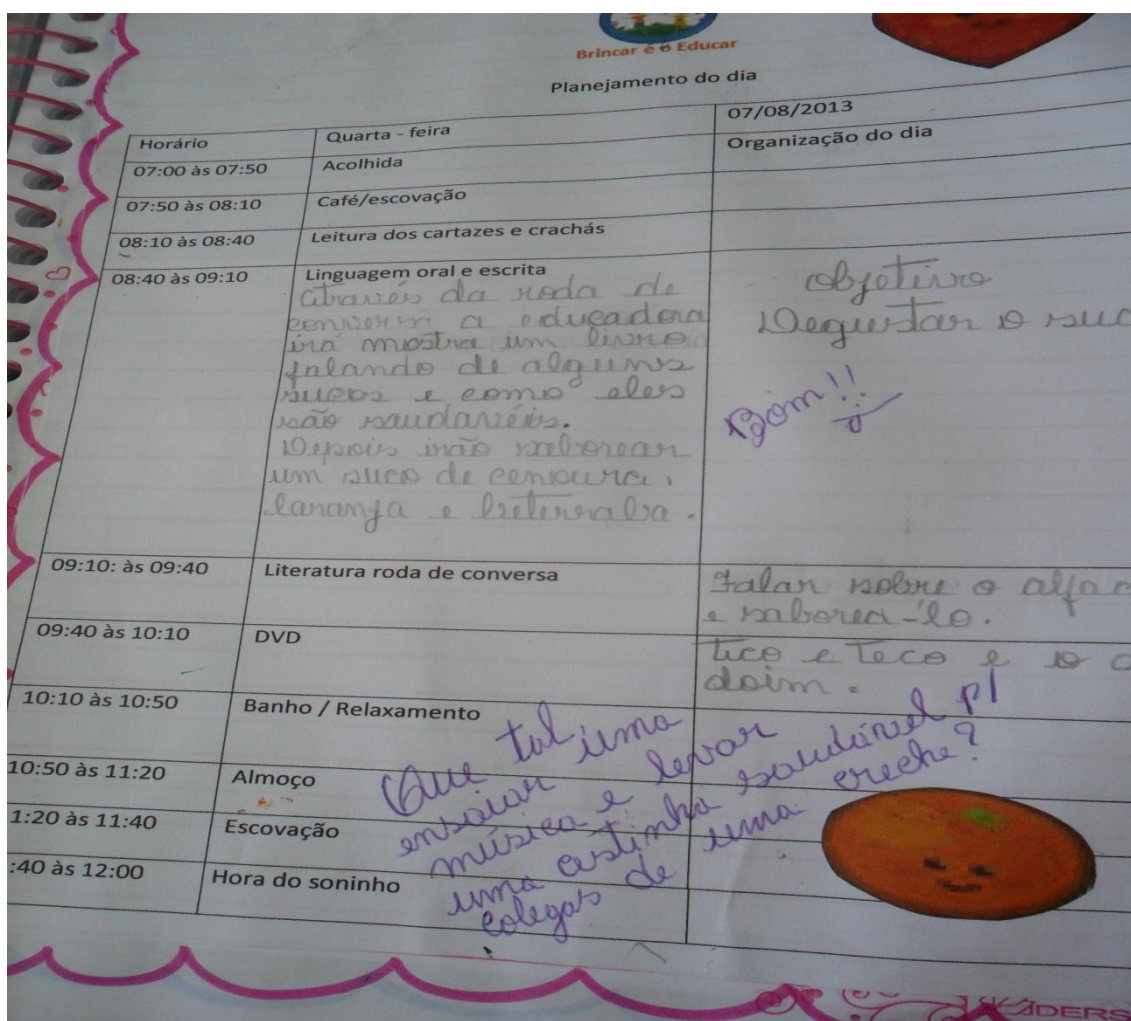 Brincar é o Educar
Planejamento do dia
Horário Quarta - feira 07/08/2013
07:00 às 07:50 Acolhida Organização do dia
07:50 às 08:10 Café/escovação
08:10 às 08:40 Leitura dos cartazes e crachás
08:40 às 09:10 Linguagem oral e escrita
através da roda de
a educadora
irá mostra um livro
falando de alguns
sucos e como eles
são saudavéis.
Depois irão saborear
um suco de cenoura,
laranja e beterraba.
objetivo
Degustar o suc
Bom!!
09:10: às 09:40 Literatura roda de conversa
Falar sobre o alfac
e saborea-lo.
09:40 às 10:10 DVD
Tico e Teco e o
doim.
10:10 às 10:50 Banho / Relaxamento
10:50 às 11:20 Almoço
1:20 às 11:40 Escovação
:40 às 12:00 Hora do soninho
Que tal uma
ensaiar
música e levar
uma cestinha saudável p/
colegas de uma creche?
DERS